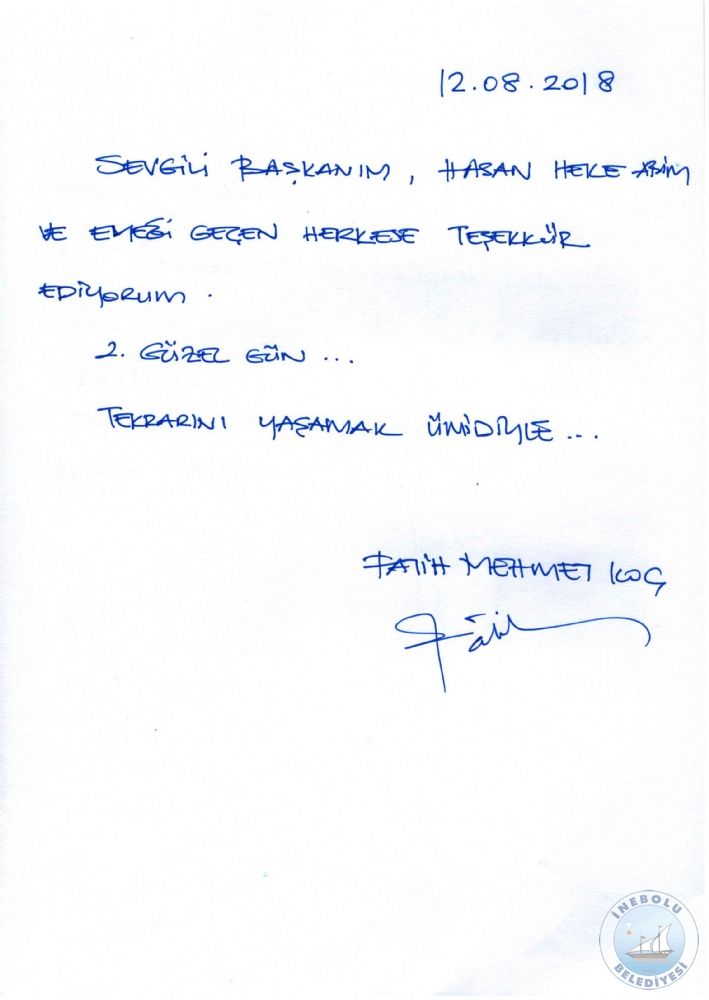 12.08.2018
SEVGİLİ BAŞKANIM, HASAN HEKE ABİM
VE EMEĞİ GEÇEN HERKESE TEŞEKKÜR
EDİYORUM.
2. GÜZEL GÜN...
TEKRARINI YAŞAMAK ÜMİDİYLE...
FATİH MEHMET KOÇ
Fatih
İNEBOLU
BELEDİYESİ